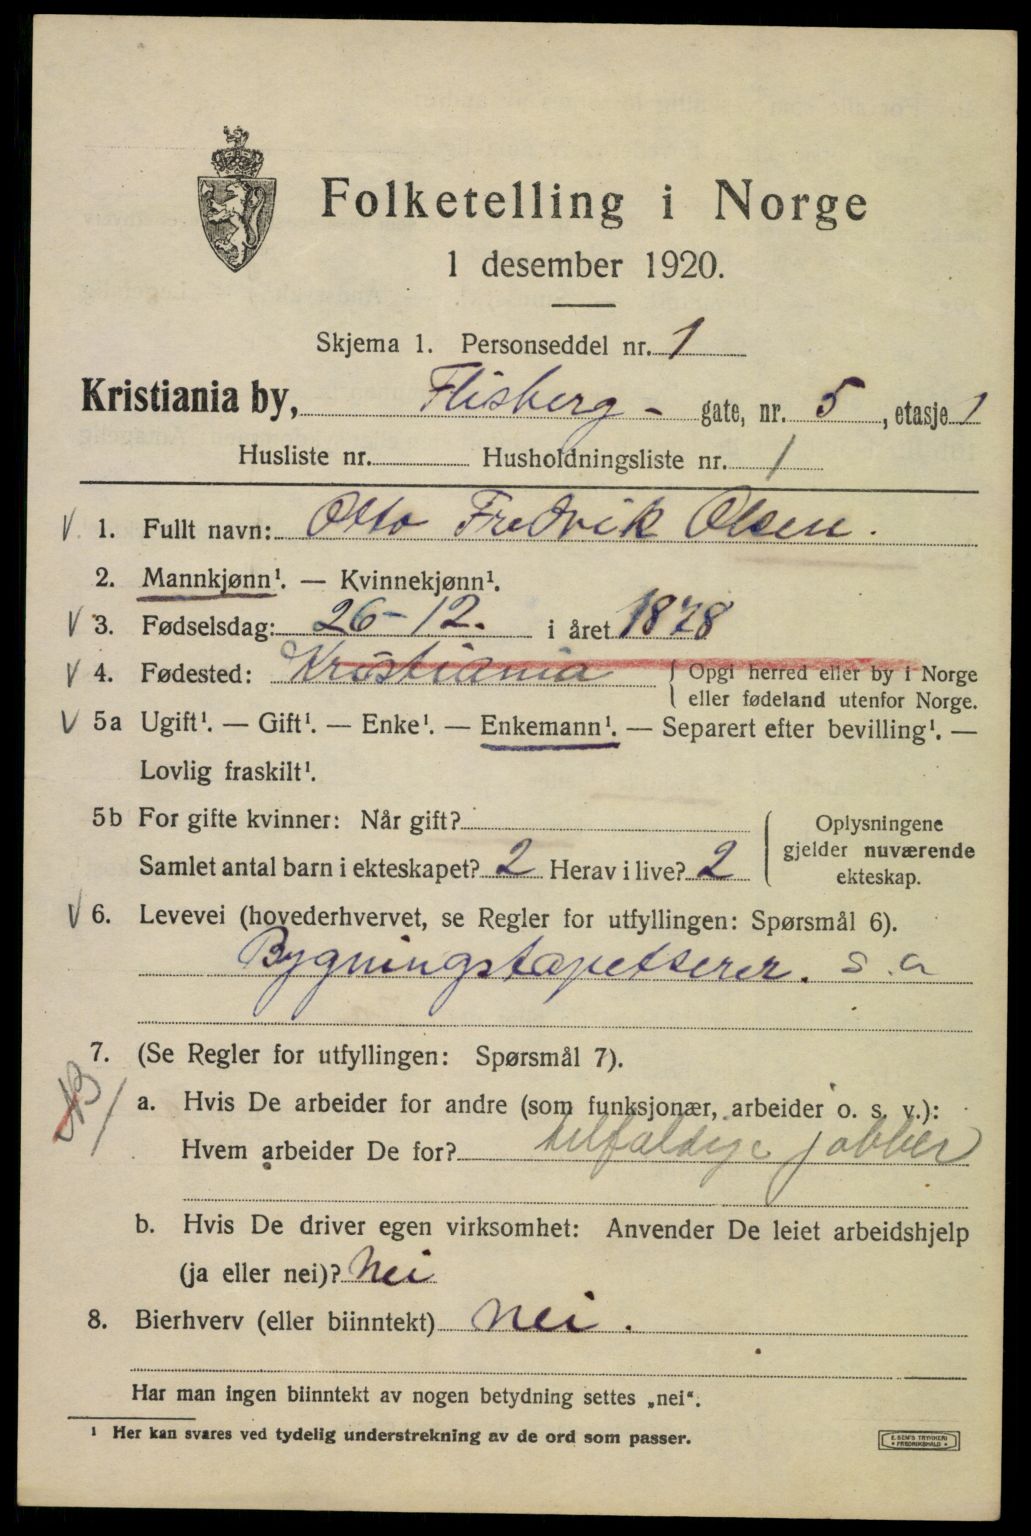 Folketelling i Norge
1 desember 1920.
Skjema 1. Personseddel nr. 1
Kristiania by, Flisberg - gate, nr. 5, etasje 1
Husliste nr. Husholdningsliste nr. 1
V 1. Fullt navn: Otto Fredrik Olsen.
2. Mannkjønn¹. — Kvinnekjønn¹.
V 3. Fødselsdag: 26-12. i året 1878
V 4. Fødested: Kristiania { Opgi herred eller by i Norge
eller fødeland utenfor Norge.
V 5a Ugift¹. — Gift¹. — Enke¹. — Enkemann¹. — Separert efter bevilling¹. —
Lovlig fraskilt¹.
5b For gifte kvinner: Når gift?
Samlet antal barn i ekteskapet? 2 Herav i live? 2
Oplysningene
gjelder nuværende
ekteskap.
V 6. Levevei (hovederhvervet, se Regler for utfyllingen: Spørsmål 6).
Bygningstapetserer. s.a
7. (Se Regler for utfyllingen: Spørsmål 7).
a. Hvis De arbeider for andre (som funksjonær, arbeider o. s. v.):
Hvem arbeider De for? tilfældige jobber
b. Hvis De driver egen virksomhet: Anvender De leiet arbeidshjelp
(ja eller nei)? Nei
8. Bierhverv (eller biinntekt) Nei.
Har man ingen biinntekt av nogen betydning settes „nei“.
¹ Her kan svares ved tydelig understrekning av de ord som passer.
E. SEM'S TRYKKERI
• FREDRIKSHALD •